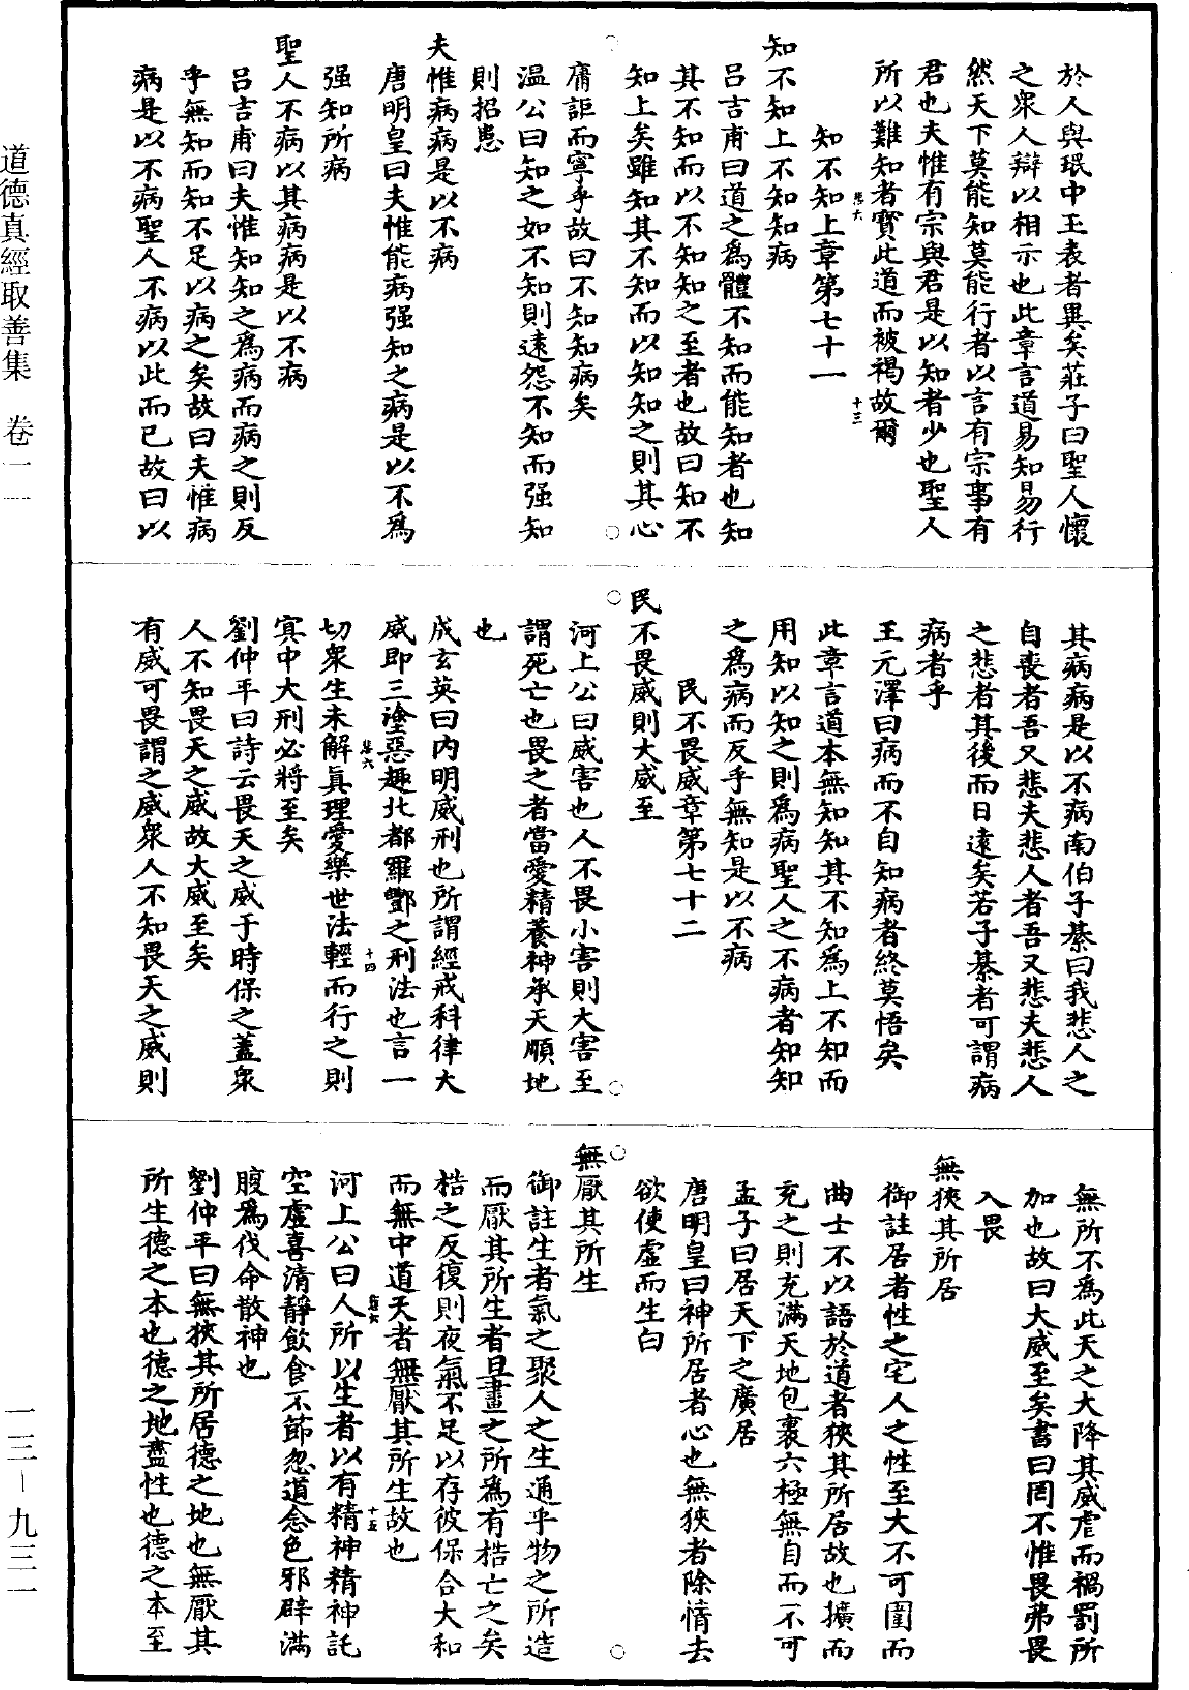 於人與珉中玉表者異矣莊子曰聖人懷
之衆人辯以相示也此章言道易知易行
然天下莫能知莫能行者以言有宗事有
君也夫惟有宗與君是以知者少也聖人
所以難知者寶此道而被褐故爾
知不知上章第七十一
知不知上不知知病
呂吉甫曰道之爲體不知而能知者也知
其不知而以不知知之至者也故曰知不
知上矣雖知其不知而以知知之則其心
庸詎而寧乎故曰不知知病矣
温公曰知之如不知則遠怨不知而强知
則招患
夫惟病病是以不病
唐明皇曰夫惟能病强知之病是以不爲
强知所病
聖人不病以其病病是以不病
呂吉甫曰夫惟知知之爲病而病之則反
乎無知而知不足以病之矣故曰夫惟病
病是以不病聖人不病以此而已故曰以
其病病是以不病南伯子綦曰我悲人之
自喪者吾又悲夫悲人者吾又悲夫悲人
之悲者其後而日遠矣若子綦者可謂病
病者乎
王元澤曰病而不自知病者終莫悟矣
此章言道本無知知其不知爲上不知而
用知以知之則爲病聖人之不病者知知
之爲病而反乎無知是以不病
民不畏威章第七十二
民不畏威則大威至
河上公曰威害也人不畏小害則大害至
謂死亡也畏之者當愛精養神承天順地
也
成玄英曰内明威刑也所謂經戒科律大
威即三塗惡趣北都羅酆之刑法也言一
切衆生未解真理愛樂世法輕而行之則
㝠中大刑必將至矣
劉仲平曰詩云畏天之威于時保之蓋衆
人不知畏天之威故大威至矣
有威可畏謂之威衆人不知畏天之威則
無所不爲此天之大降其威虐而禍罰所
加也故曰大威至矣書曰罔不惟畏弗畏
入畏
無狹其所居
御註居者性之宅人之性至大不可圍而
曲士不以語於道者狹其所居故也擴而
充之則充滿天地包裹六極無自而不可
孟子曰居天下之廣居
唐明皇曰神所居者心也無狹者除情去
欲使虚而生白
無厭其所生
御註生者氣之聚人之生通乎物之所造
而厭其所生者旦晝之所爲有梏亡之矣
梏之反復則夜氣不足以存彼保合大和
而無中道夭者無厭其所生故也
河上公曰人所以生者以有精神精神託
空虚喜清静飲食不節忽道念色邪僻滿
腹爲伐命散神也
劉仲平曰無狹其所居德之地也無厭其
所生德之本也德之地盡性也德之本至
道德真經取善集　卷一一
一三－九三一